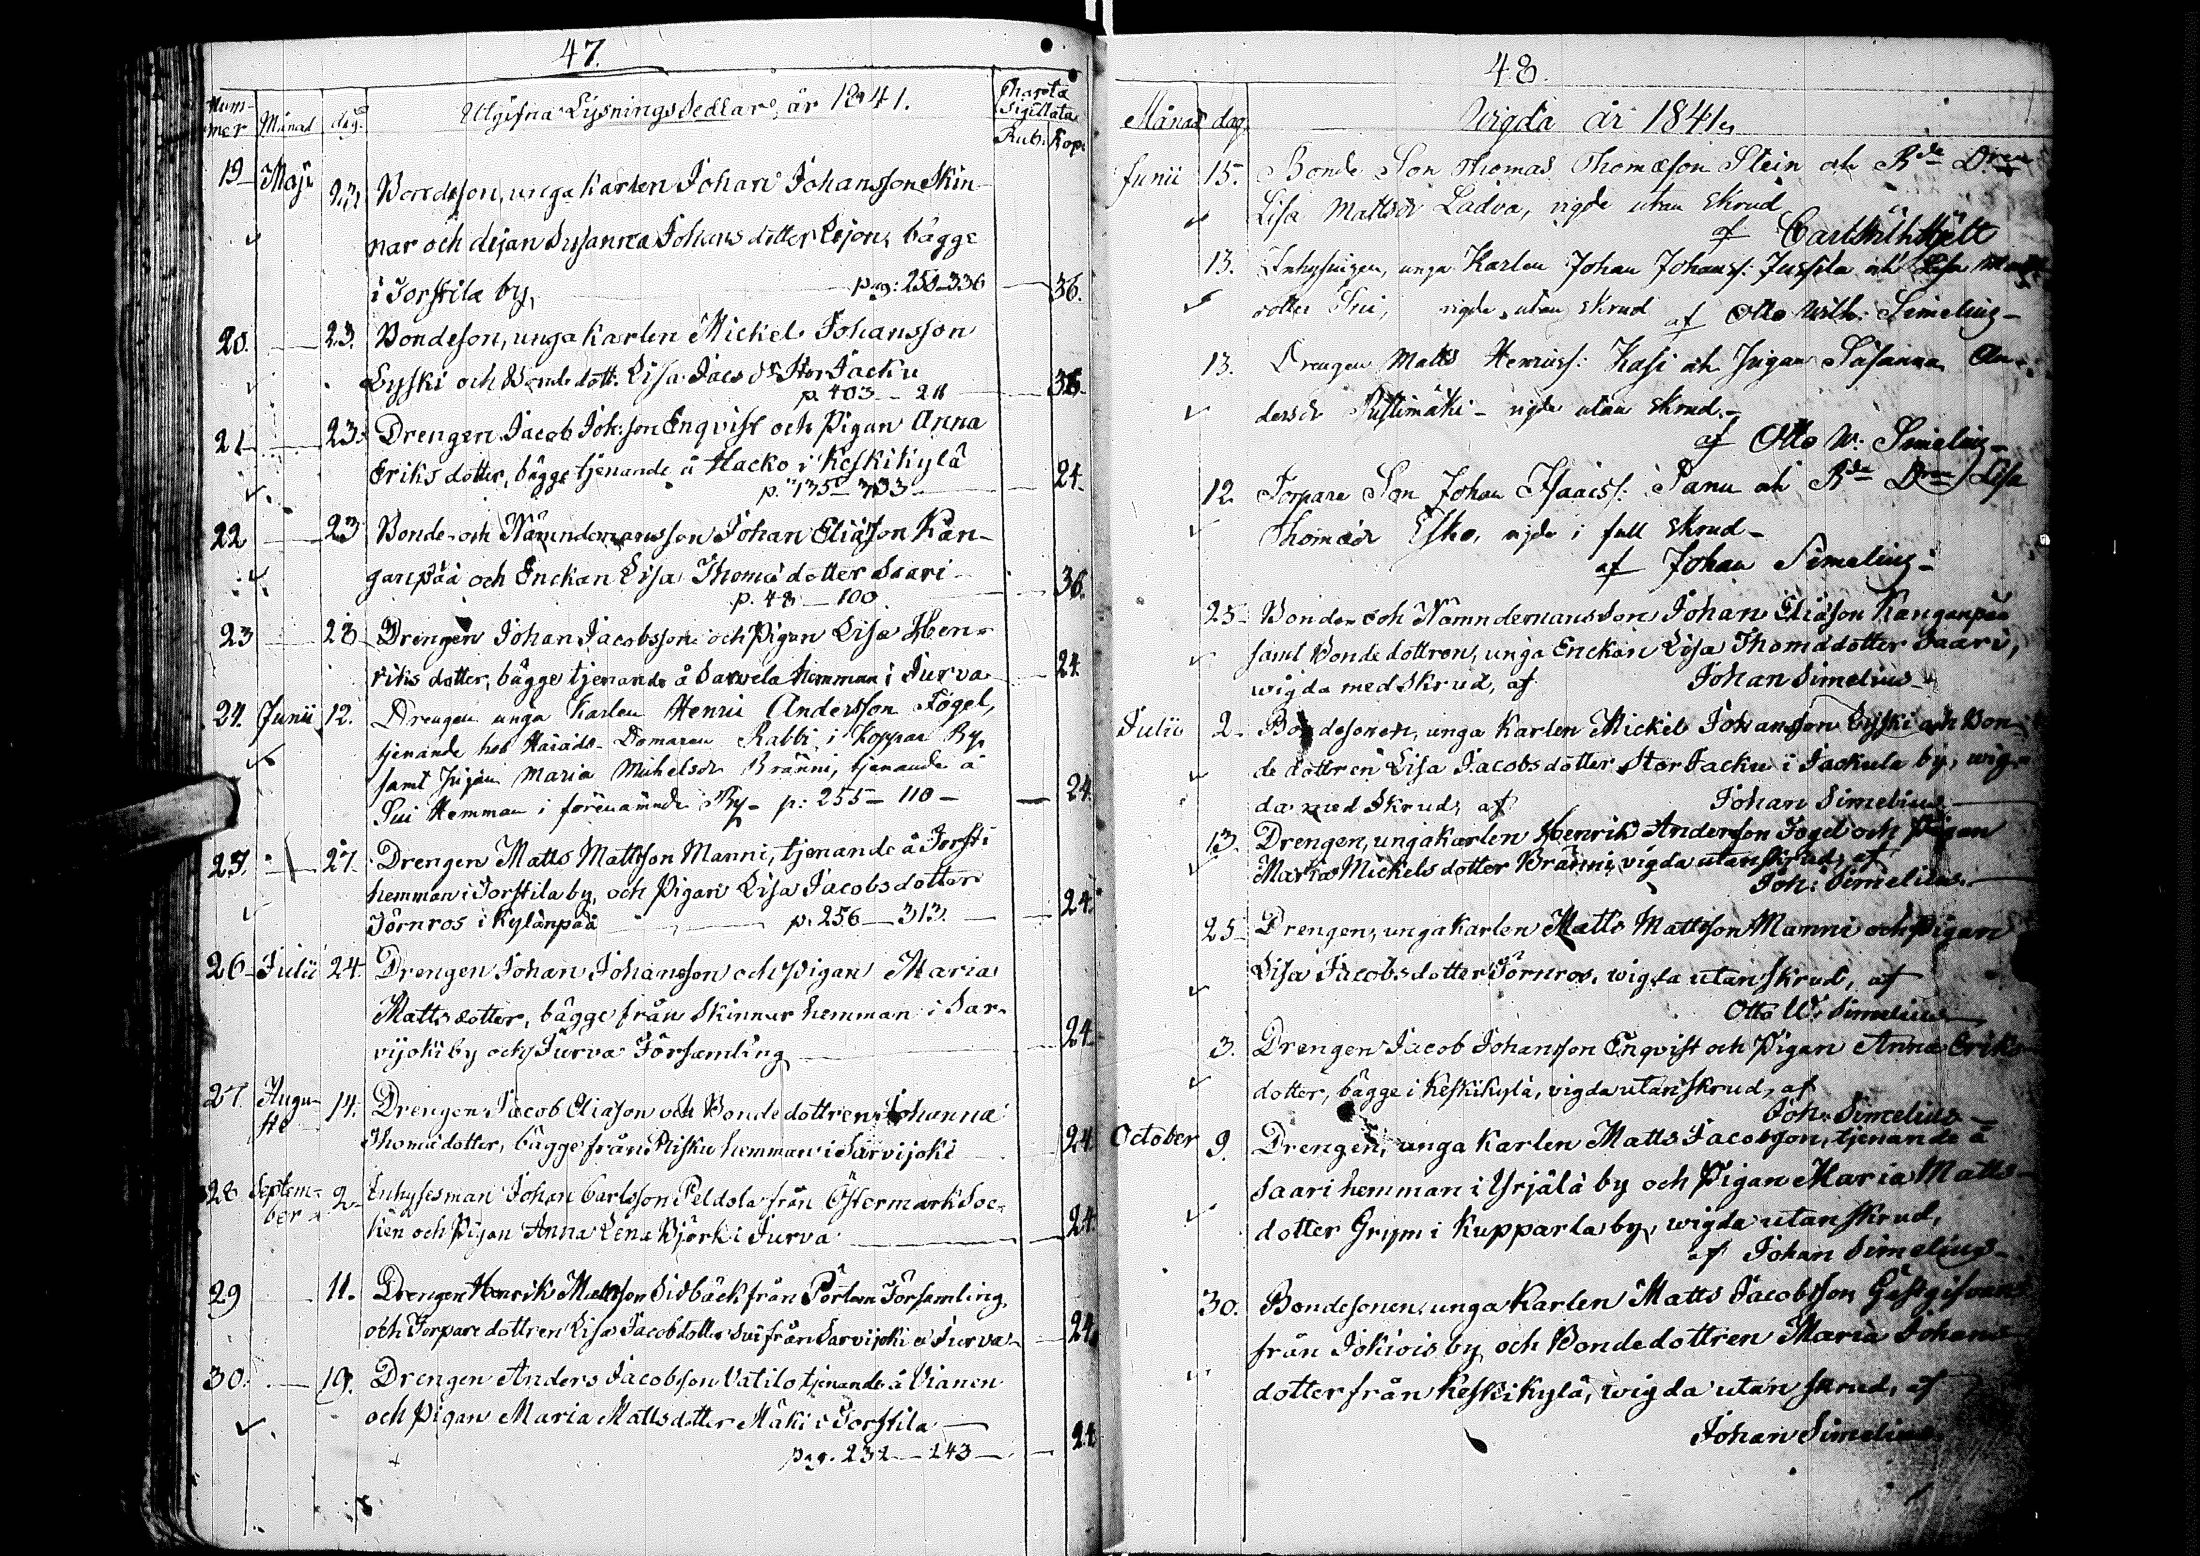 47.
Num-
mer Månad dag. Utgifna Lysnings Sedlar, år 1841. Charta Sigillata
Rub. Kop.
19 Maji 23. Bondeson, unga Karlen Johan Johansson Skin-
nar och Susanna Johans dotter bägge
i Torstila by, pag: 250-336 36.
20. 23. Bondeson, unga Karlen Mickel Johansson
Lyski och Bondedott. Lisa Jacs dr Stor Jacku
p. 403 - 211 36.
21 23. Drengen Jacob Joh:son Enqvist och Pigan Anna
Eriks dotter, bägge tjenande å Hacko i Keskikylä
p. 135 - 24.
22 23 Bonde- och Nämndemansson Johan Eliäson Kan-
ganpää och Enckan Lisa Thomä dotter Saari
p. 48 - 100 36.
23 28 Drengen Johan Jacobsson och Pigan Lisa Hen-
riks dotter, bägge tjenande å Sarvela hemman i Jurva 24.
24. Junii 12. Drengen unga Karlen Henric Andersson Fogel,
tjenande hos Härads Domaren Rabbi i Koppar By
samt Pigan Maria Michelsdr Bränni, tjenande å
Sui Hemman i förenämnde By - p: 255 - 110 - 24.
25. 27. Drengen Matts Mattsson Manni, tjenande å Torsti
hemman i Torstila by, och Pigan Lisa Jacobsdotter
Törnros i Kylänpää p. 256 - 313. 24.
26 Julii 24. Drengen Johan Johansson och Pigan Maria
Matts dotter, bägge från Skinnar hemman i Sar-
vijoki by och Jurva Församling 24.
27. Augu-
sti 14. Drengen Jacob Eliäson och Bondedottren Johanna
Thomä dotter, bägge från hemman i Sarvijoki 24.
28 Septem-
ber 2. Inhysesman Johan Carlsson Peldola från Östermark Soc-
ken och Pigan Anna Lena Björk i Jurva 24.
29 11. Drengen Henrik Mattsson Sidbäck från Pörtom Församling
och Torpare dottren Lisa Jacobsdotter Sui från Sarvijoki i Jurva 24.
30. 19. Drengen Anders Jacobson Vatilo tjenande å Vianen
och Pigan Maria Mattsdotter Mäki i Torstila
pag. 232 - 243 - 24
48.
Månad dag. Wigda år 1841.
Junii 15. Bonde Son Thomas Thomæson Stein och Bde Dren
Lisa Mattsdr Ladva, vigde utan skrud
af Carl Wilh Hjelt
13. Inhysingen, unga Karlen Johan Johanss: Jussila och Lisa Matts
dotter Sui, vigde utan skrud af Otto Wilh: Simelius -
13. Drengen Matts Henricss: Kasi och Pigan Susanna An-
dersdr Pustimäki - vigde utan skrud.
af Otto W. Simelius -
12. Torpare Son Johan Isaacss: Panu och Bde Dren Lisa
Thomædr Esko, vigde i full skrud -
af Johan Simelius -
25 Bonde- och Nämndemans Son Johan Eliäson Kanganpää
samt Bonde dottren, unga Enckan Lisa Thomä dotter Saari,
wigda med skrud, af Johan Simelius
Julii 2. Bondesonen, unga Karlen Mickel Johansson Lyski och Bon-
de dottren Lisa Jacobs dotter Stor Jacku i Jackula by, wig-
da med Skrud, af Johan Simelius
13. Drengen, unga karlen Henrik Anderson Fogel och Pigan
Maria Mickels dotter Bränni, vigda utan Skrud, af
Joh: Simelius.
25 Drengen, unga karlen Matts Mattsson Manni och Pigan
Lisa Jacobsdotter Törnros, wigda utan skrud, af
Otto W. Simelius
3. Drengen Jacob Johansson Enqvist och Pigan Anna Eriks
dotter, bägge i Keskikylä, vigda utan skrud, af
Joh: Simelius
October 9. Drengen, unga Karlen Matts Jacobsson, tjenande å
Saari hemman i Yrjälä by och Pigan Maria Matts
dotter Grym i Kupparla by, wigda utan skrud,
af Johan Simelius
30. Bondesonen, unga Karlen Matts Jacobsson Gästgifvars
från Jokiois by och Bondedottren Maria Johans
dotter från Keskikylä, wigda utan skrud, af
Johan Simelius.